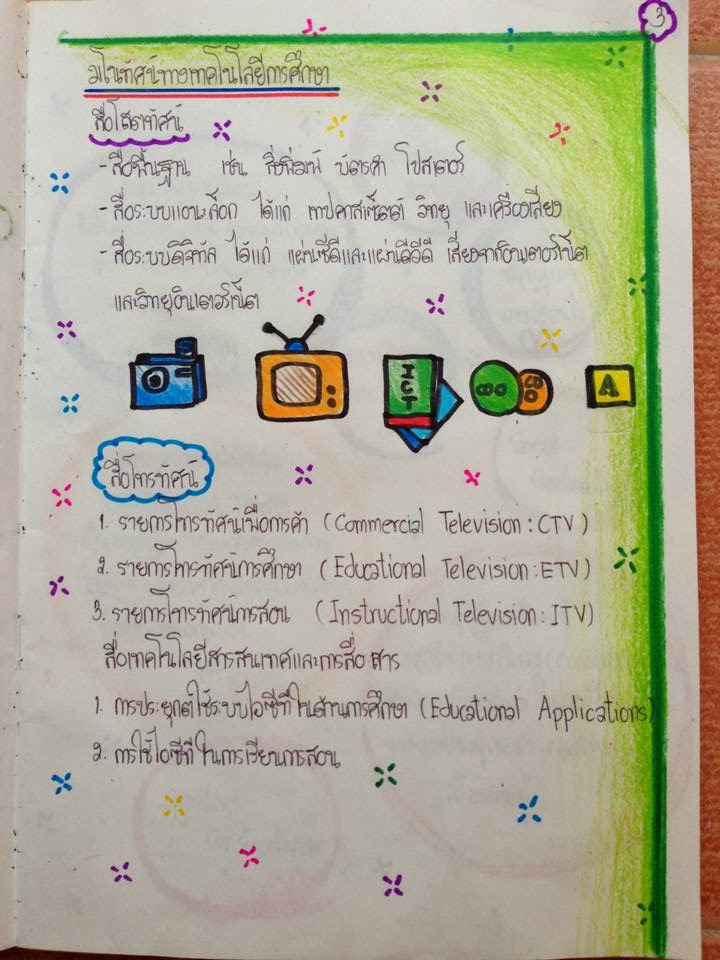 3
มโนทัศน์ทางเทคโนโลยีการศึกษา
สื่อโสตทัศน์
- สื่อพื้นฐาน เช่น สิ่งพิมพ์ บัตรคำ โปสเตอร์
- สื่อระบบแอนะล็อก ได้แก่ เทปคาสเซ็ตต์ วิทยุ และเครื่องเสียง
- สื่อระบบดิจิทัล ได้แก่ แผ่นซีดีและแผ่นดีวีดี เสียงจากอินเตอร์เน็ต
และวิทยุอินเตอร์เน็ต
ICT
CD
A
สื่อโทรทัศน์
1. รายการโทรทัศน์เพื่อการค้า (Commercial Television : CTV)
2. รายการโทรทัศน์การศึกษา (Educational Television : ETV)
3. รายการโทรทัศน์การสอน (Instructional Television : ITV)
สื่อเทคโนโลยีสารสนเทศและการสื่อสาร
1. การประยุกต์ใช้ระบบไอซีทีในด้านการศึกษา (Educational Applications)
2. การใช้ไอซีทีในการเรียนการสอน